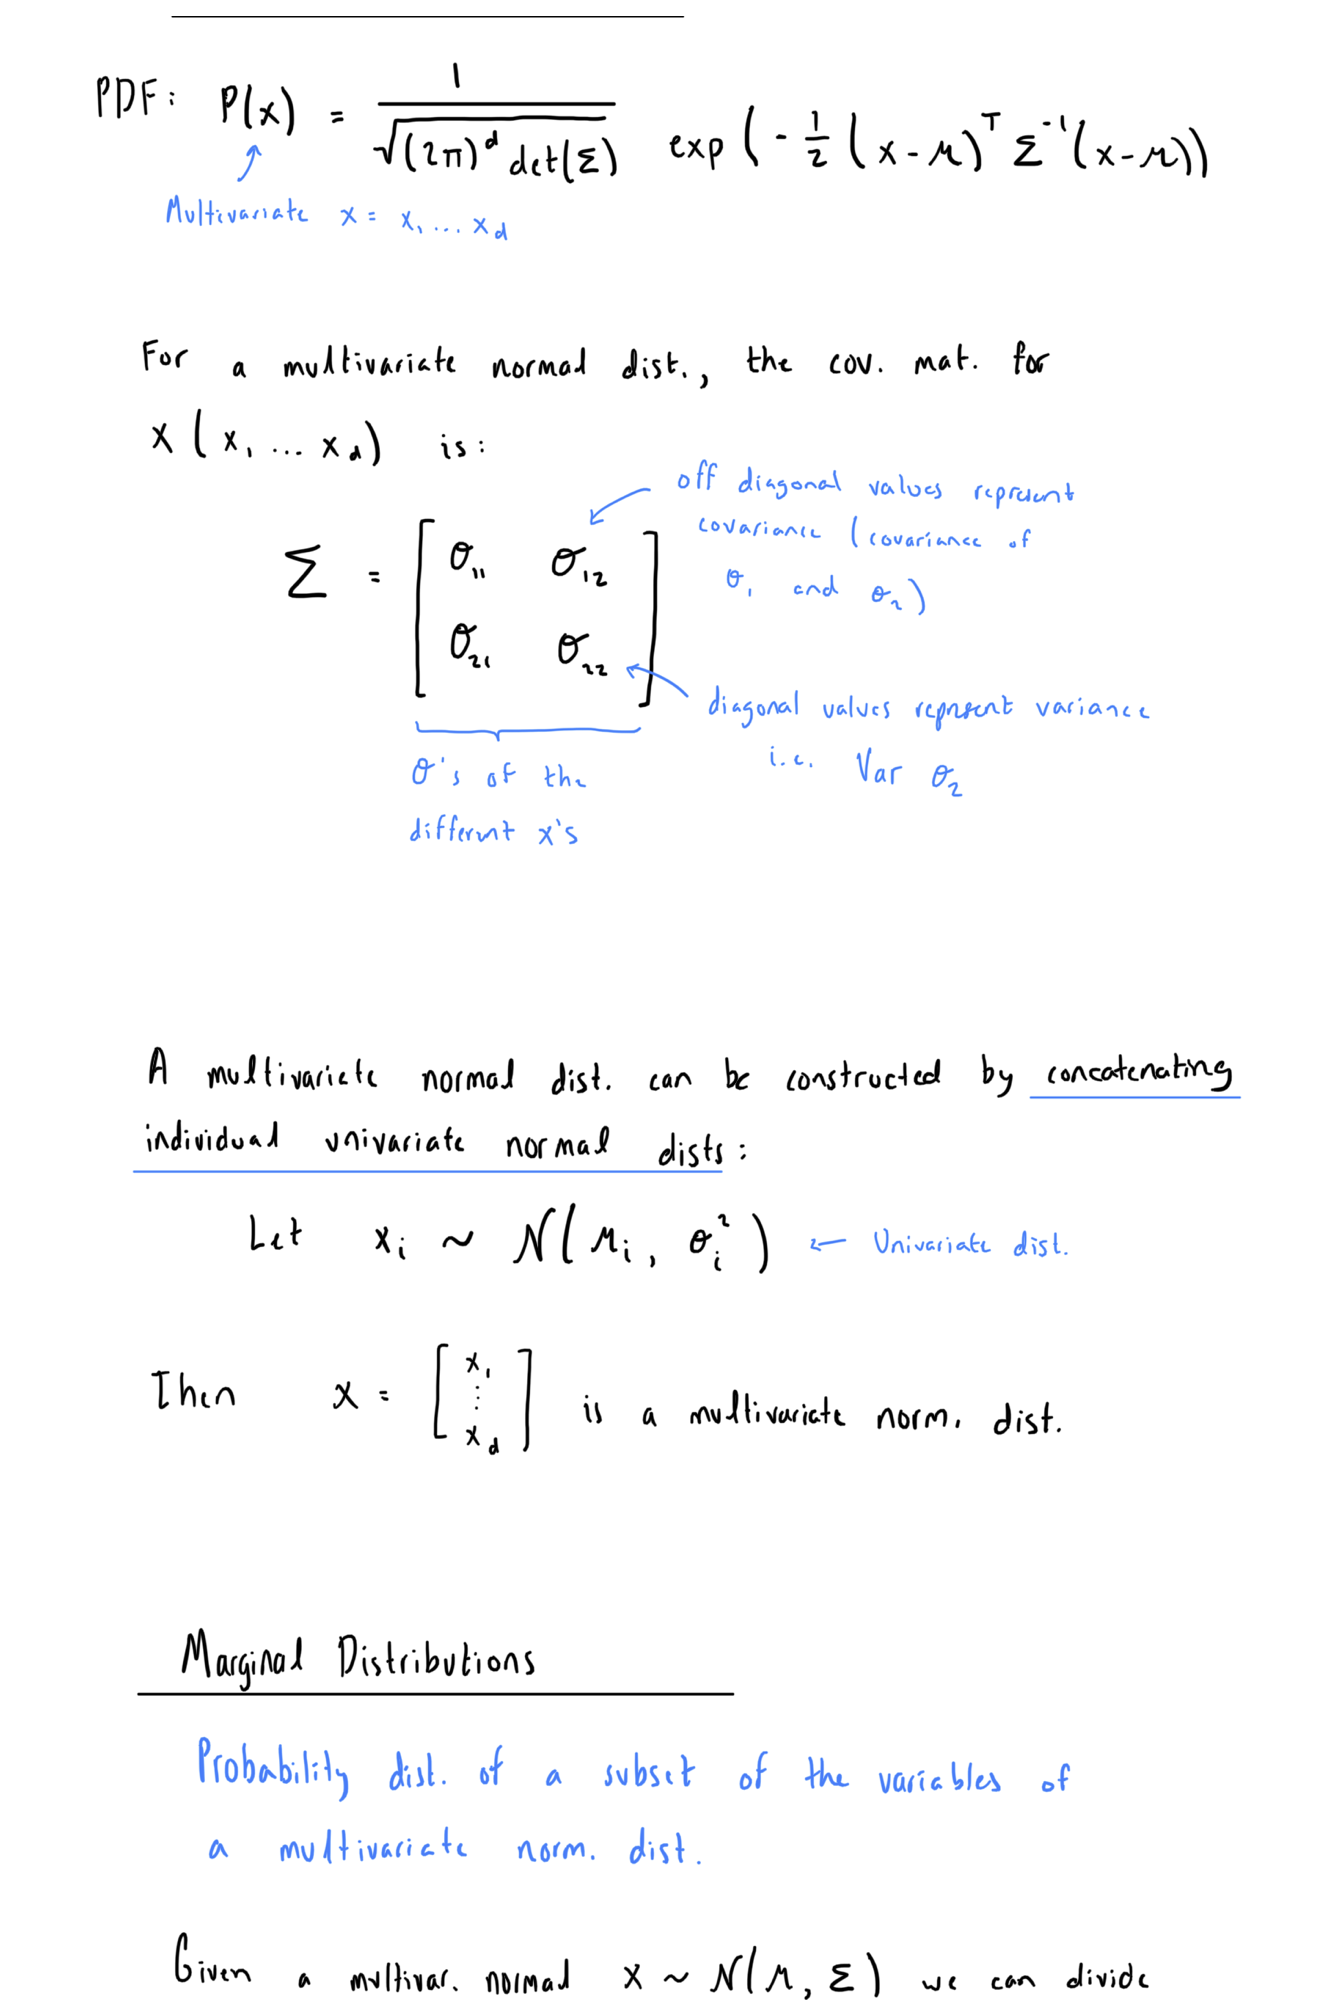 PDF: P(x) = 1 / √((2π)^d det(Σ)) exp(-1/2 (x-μ)^T Σ^-1 (x-μ))
Multivariate x = x₁ ... x_d
For a multivariate normal dist., the cov. mat. for
X (x₁ ... x_d) is:
off diagonal values represent
covariance (covariance of
σ₁ and σ₂)
Σ = [ σ₁₁ σ₁₂
σ₂₁ σ₂₂ ]
diagonal values represent variance
i.e. Var σ₂
σ's of the
different x's
A multivariate normal dist. can be constructed by concatenating
individual univariate normal dists:
Let x_i ~ N(μ_i, σ_i²) ← Univariate dist.
Then x = [ x₁ ⋮ x_d ] is a multivariate norm. dist.
Marginal Distributions
Probability dist. of a subset of the variables of
a multivariate norm. dist.
Given a multivar. normal x ~ N(μ, Σ) we can divide